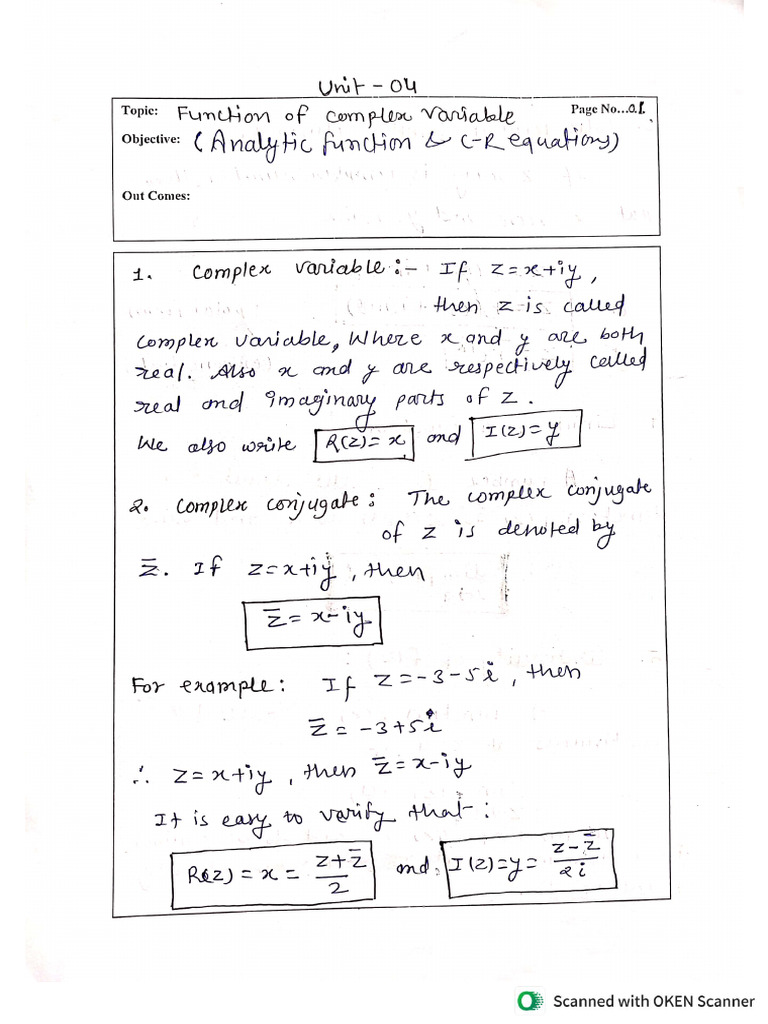 Unit - 04
Topic: Function of complex variable Page No...01.
Objective: (Analytic function & C-R equations)
Out Comes:
1. Complex variable :- If z = x+iy,
then z is called
complex variable, Where x and y are both
real. Also x and y are respectively called
real and imaginary parts of z.
We also write R(z) = x and I(z) = y
2. Complex conjugate : The complex conjugate
of z is denoted by
z̄. If z = x+iy, then
z̄ = x-iy
For example : If z = -3-5i, then
z̄ = -3+5i
∴ z = x+iy, then z̄ = x-iy
It is easy to verify that :
R(z) = x = (z+z̄)/2 and, I(z) = y = (z-z̄)/2i
Scanned with OKEN Scanner